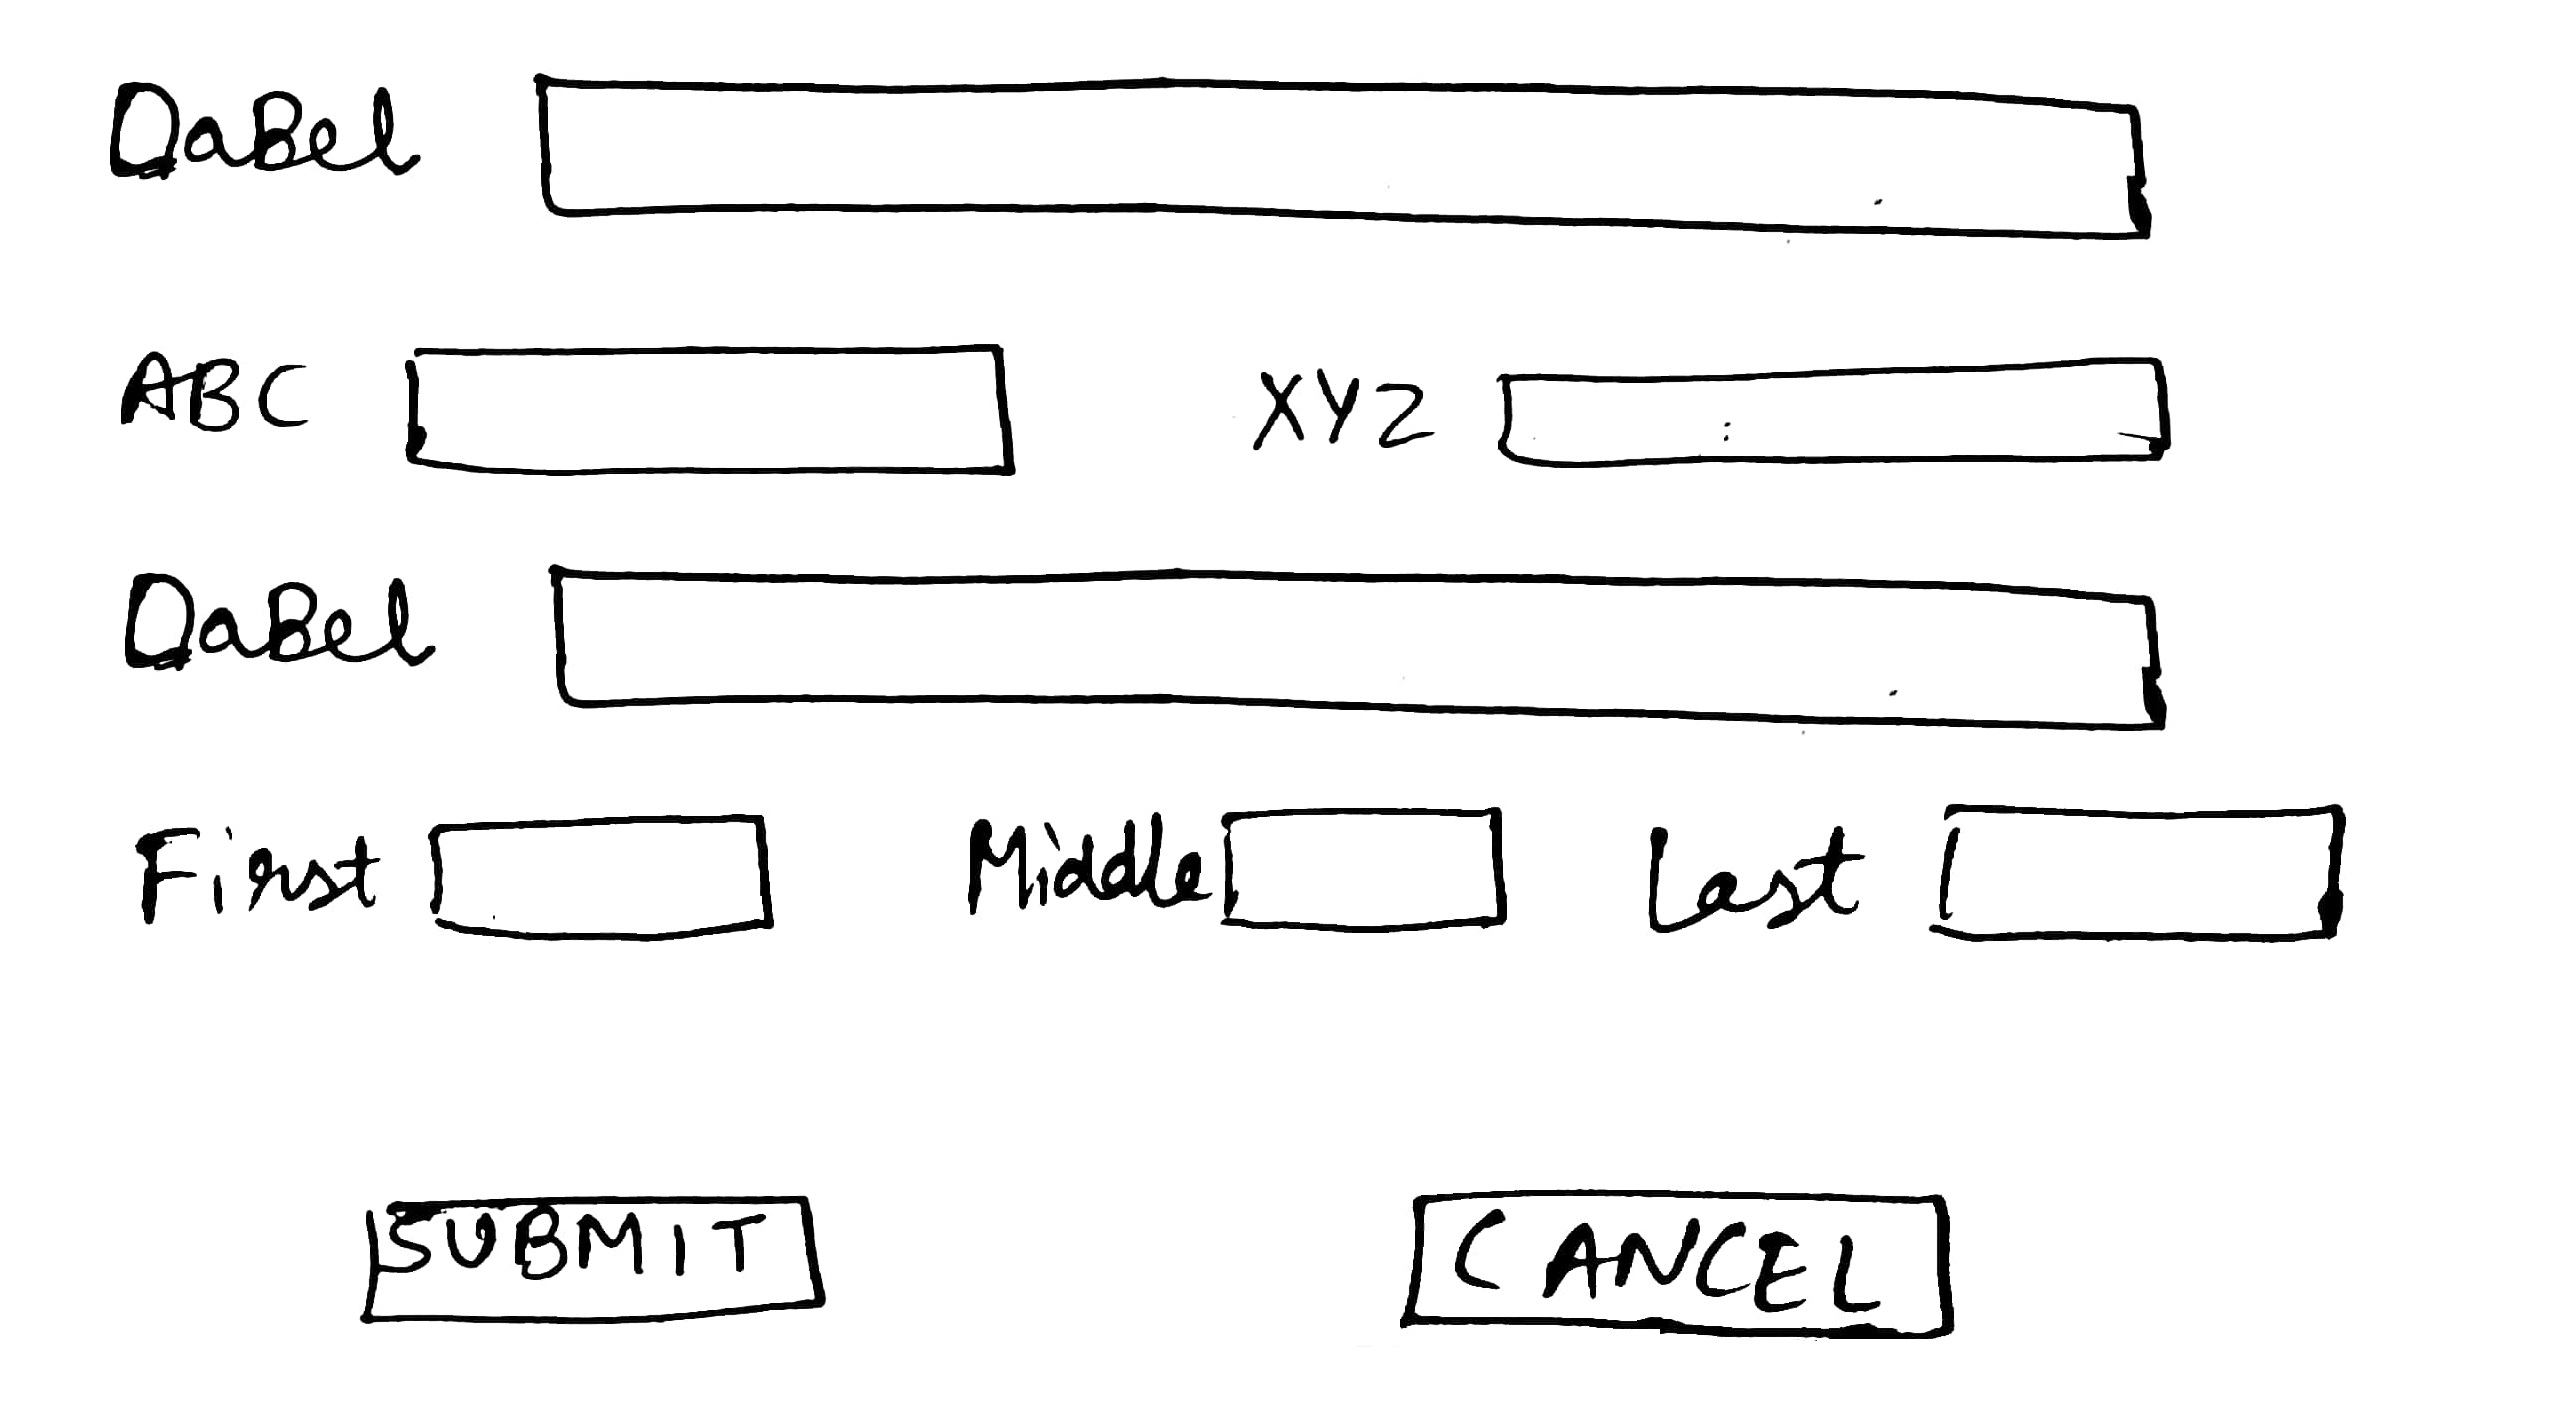 DaBel
ABC XYZ
DaBel
First Middle Last
SUBMIT CANCEL